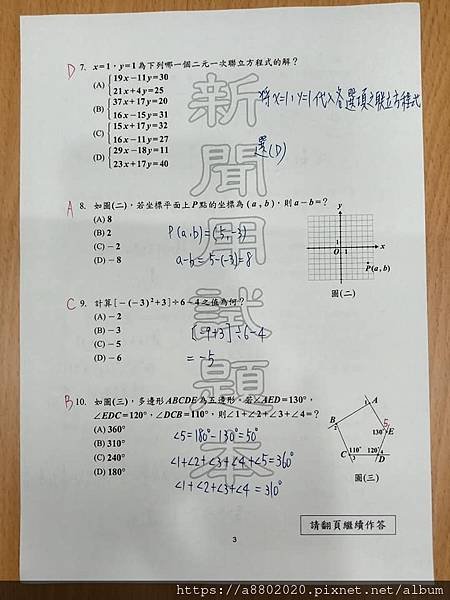 D 7. x=1，y=1為下列哪一個二元一次聯立方程式的解？
(A) { 19x−11y=30
21x+4y=25
(B) { 37x+17y=20
16x−15y=31
(C) { 15x+17y=32
16x−11y=27
(D) { 29x−18y=11
23x+17y=40
將x=1，y=1代入各選項之聯立方程式
選(D)
A 8. 如圖(二)，若坐標平面上P點的坐標為(a,b)，則a−b=？
(A) 8
(B) 2
(C) −2
(D) −8
P(a,b)=(5,-3)
a-b=5-(-3)=8
y
1
O 1
x
P(a,b)
圖(二)
C 9. 計算[−(−3)²+3]÷6−4之值為何？
(A) −2
(B) −3
(C) −5
(D) −6
[-9+3]÷6-4
=-5
B 10. 如圖(三)，多邊形ABCDE為五邊形。若∠AED=130°，
∠EDC=120°，∠DCB=110°，則∠1+∠2+∠3+∠4=？
(A) 360°
(B) 310°
(C) 240°
(D) 180°
∠5=180°-130°=50°
∠1+∠2+∠3+∠4+∠5=360°
∠1+∠2+∠3+∠4=310°
A
1
B
2
5
130°
E
C
110°
120°
3
4
D
圖(三)
新聞用試題本
請翻頁繼續作答
3
https://a8802020.pixnet.net/album